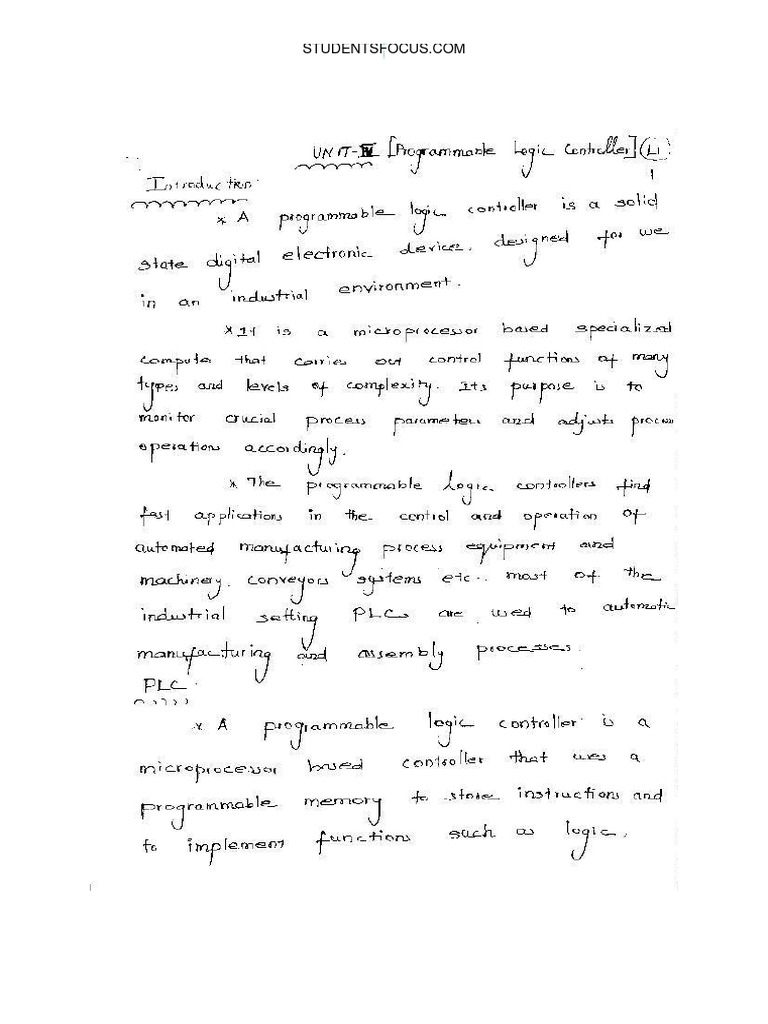 STUDENTSFOCUS.COM
UNIT-IV [Programmable Logic Controller] (L1)
1
Introduction
* A programmable logic controller is a solid
state digital electronic device. designed for use
in an industrial environment.
* It is a microprocessor based specialized
computer that carries out control functions of many
types and levels of complexity. Its purpose is to
monitor crucial process parameters and adjusts process
operations accordingly.
* The programmable Logic controllers find
fast applications in the control and operation of
automated manufacturing process equipment and
machinery. conveyors systems etc.. most of the
industrial setting PLCs are used to automatic
manufacturing and assembly processes.
PLC
* A programmable logic controller is a
microprocessor based controller that uses a
programmable memory to store instructions and
to implement functions such as logic,